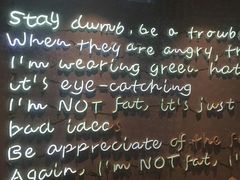 Stay dumb, be a troub
When they are angry, th
I'm wearing green hat
it's eye-catching
I'm NOT fat, it's just
bad iacos
Be appreciate of the f
Again, I'm NOT fat, i